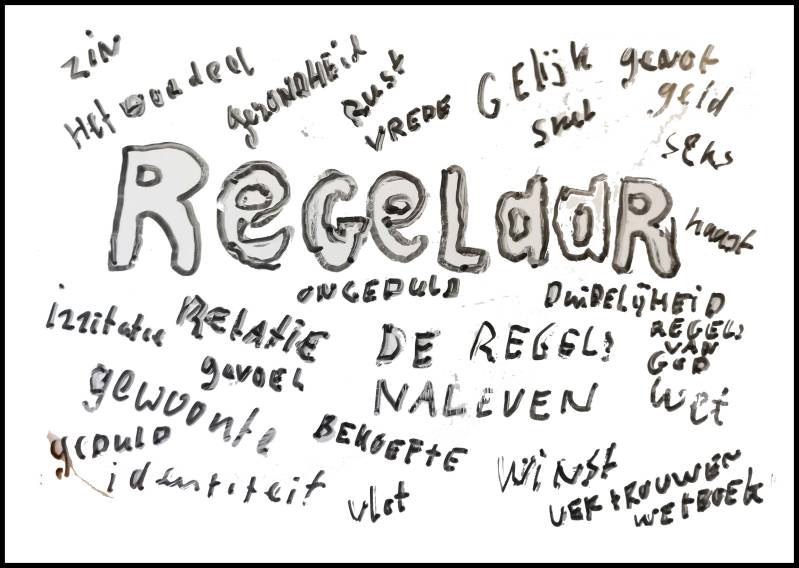 zin
Het voordeel
gezondheid
Rust
VREDE
GElijk
genot
geld
snel
seks
REGELaaR
haast
ONGEDULD
DuiDELijHEiD
irritatie
RELATiE
DE REGELS
NALEVEN
REGELS
VAN
GOD
gevoel
wet
gewoonte
BEHOEFTE
gEDULD
identiteit
vlot
WiNSt
VERTROUWEN
WETBOEK